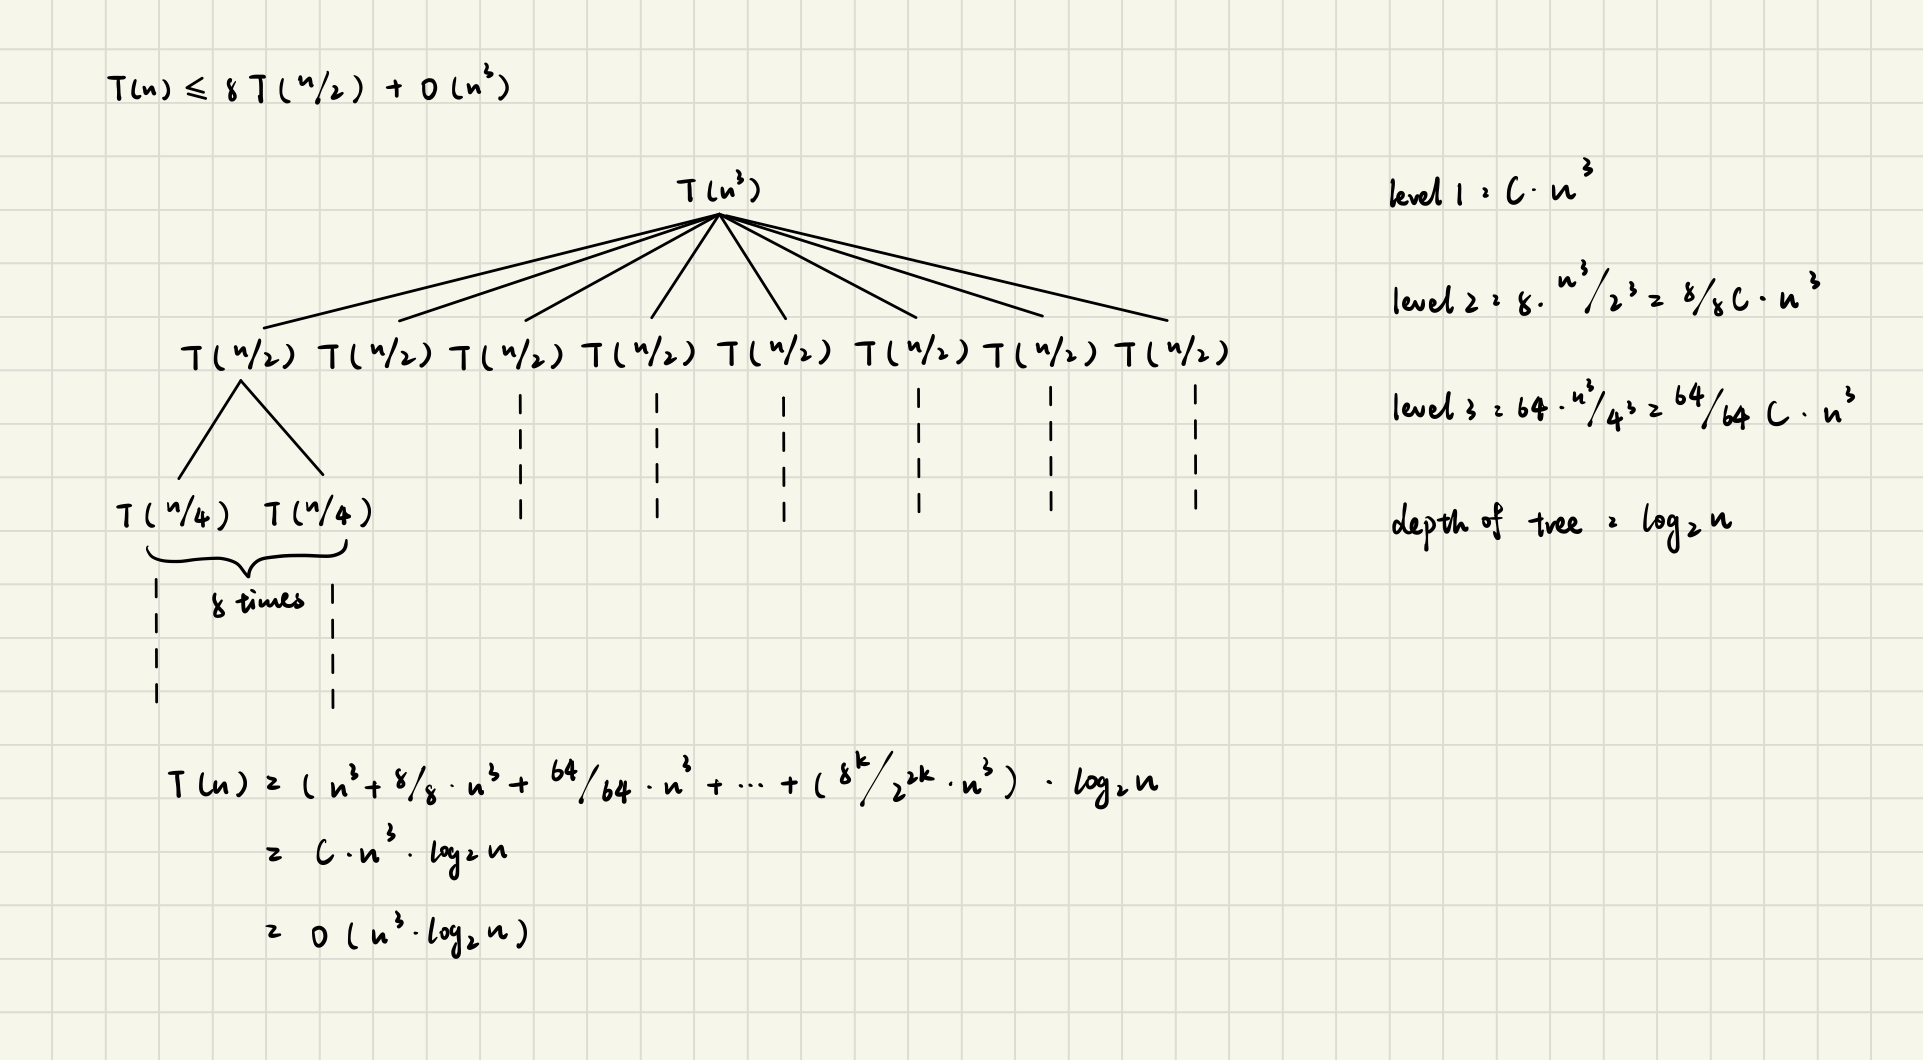 T(n) ≤ 8 T(n/2) + O(n³)
T(n³)
T(n/2) T(n/2) T(n/2) T(n/2) T(n/2) T(n/2) T(n/2) T(n/2)
T(n/4) T(n/4)
8 times
level 1 : C · n³
level 2 : 8 · n³/2³ = 8/8 C · n³
level 3 : 64 · n³/4³ = 64/64 C · n³
depth of tree : log₂ n
T(n) = (n³ + 8/8 · n³ + 64/64 · n³ + ... + (8ᵏ/2²ᵏ · n³) · log₂ n
= C · n³ · log₂ n
= O(n³ · log₂ n)